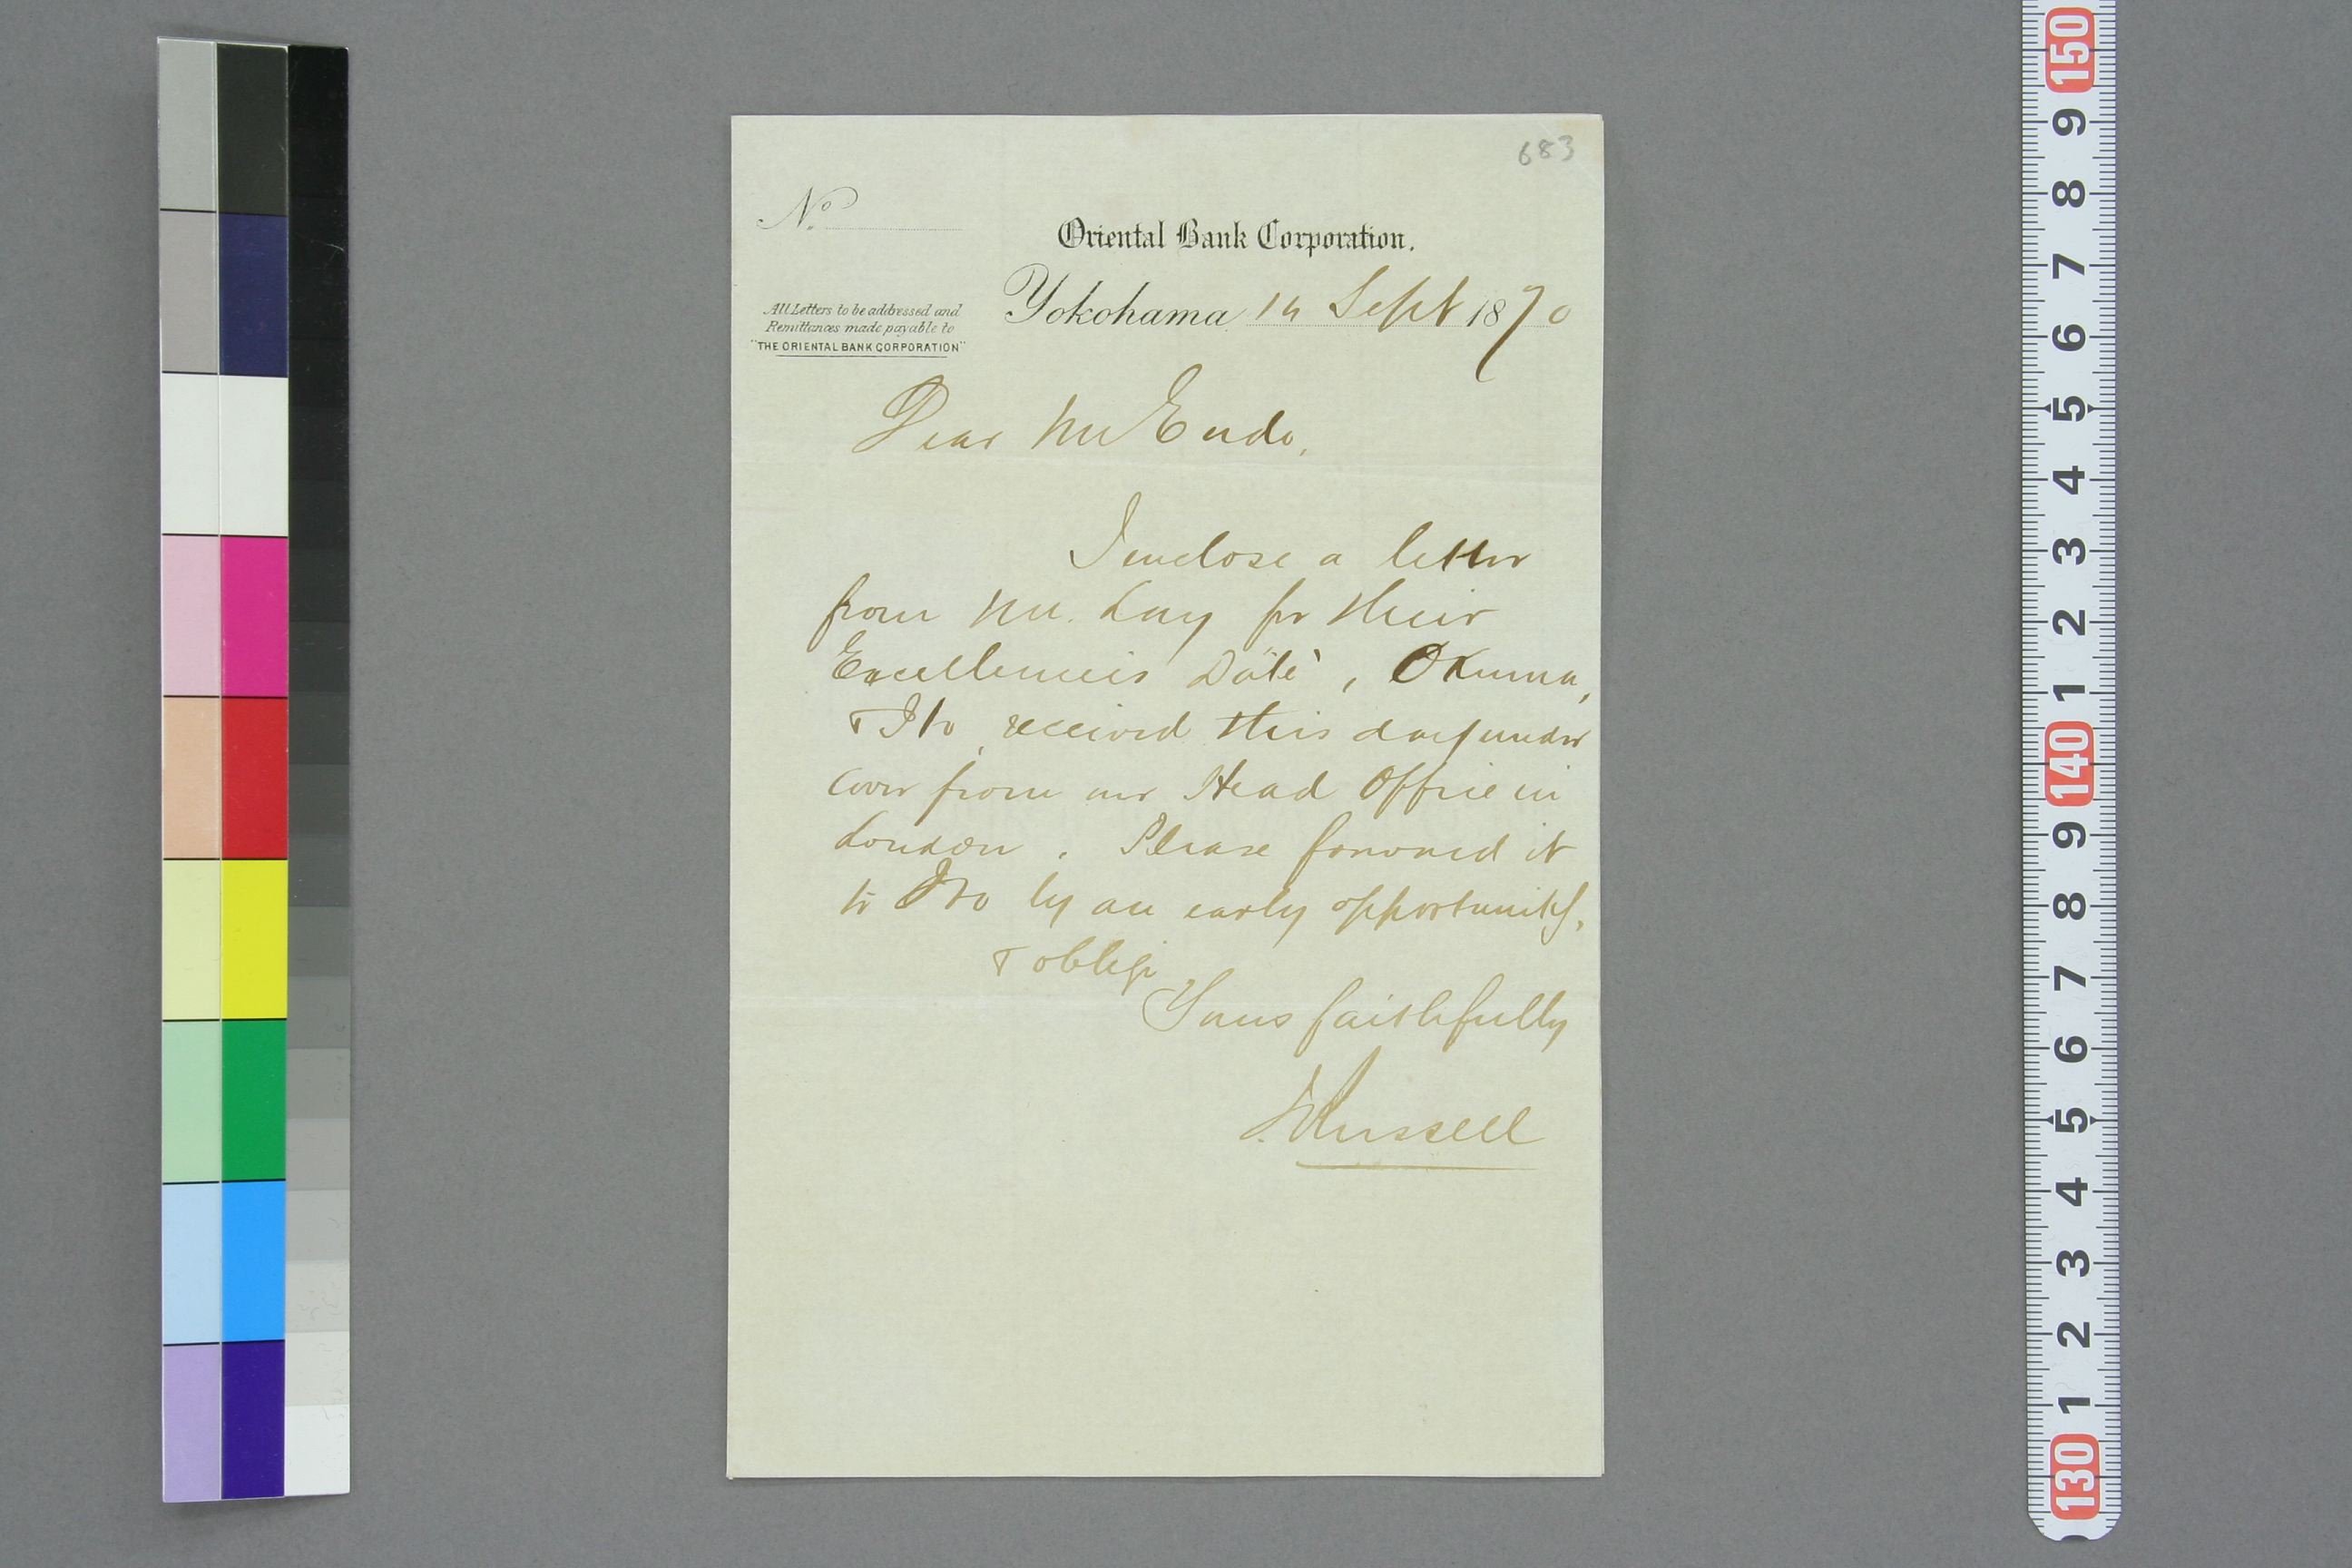 683
No.
Oriental Bank Corporation.
Yokohama 14 Sept 1870
All Letters to be addressed and
Remittances made payable to
"THE ORIENTAL BANK CORPORATION"
Dear Mr Endo,
I enclose a letter
from Mr. Lay for their
Excellencies Daté, Okuma,
& Ito, received this day under
cover from our Head Office in
London. Please forward it
to Ito by an early opportunity,
& oblige
Yours faithfully
Russell
150
9
8
7
6
5
4
3
2
1
140
9
8
7
6
5
4
3
2
1
130